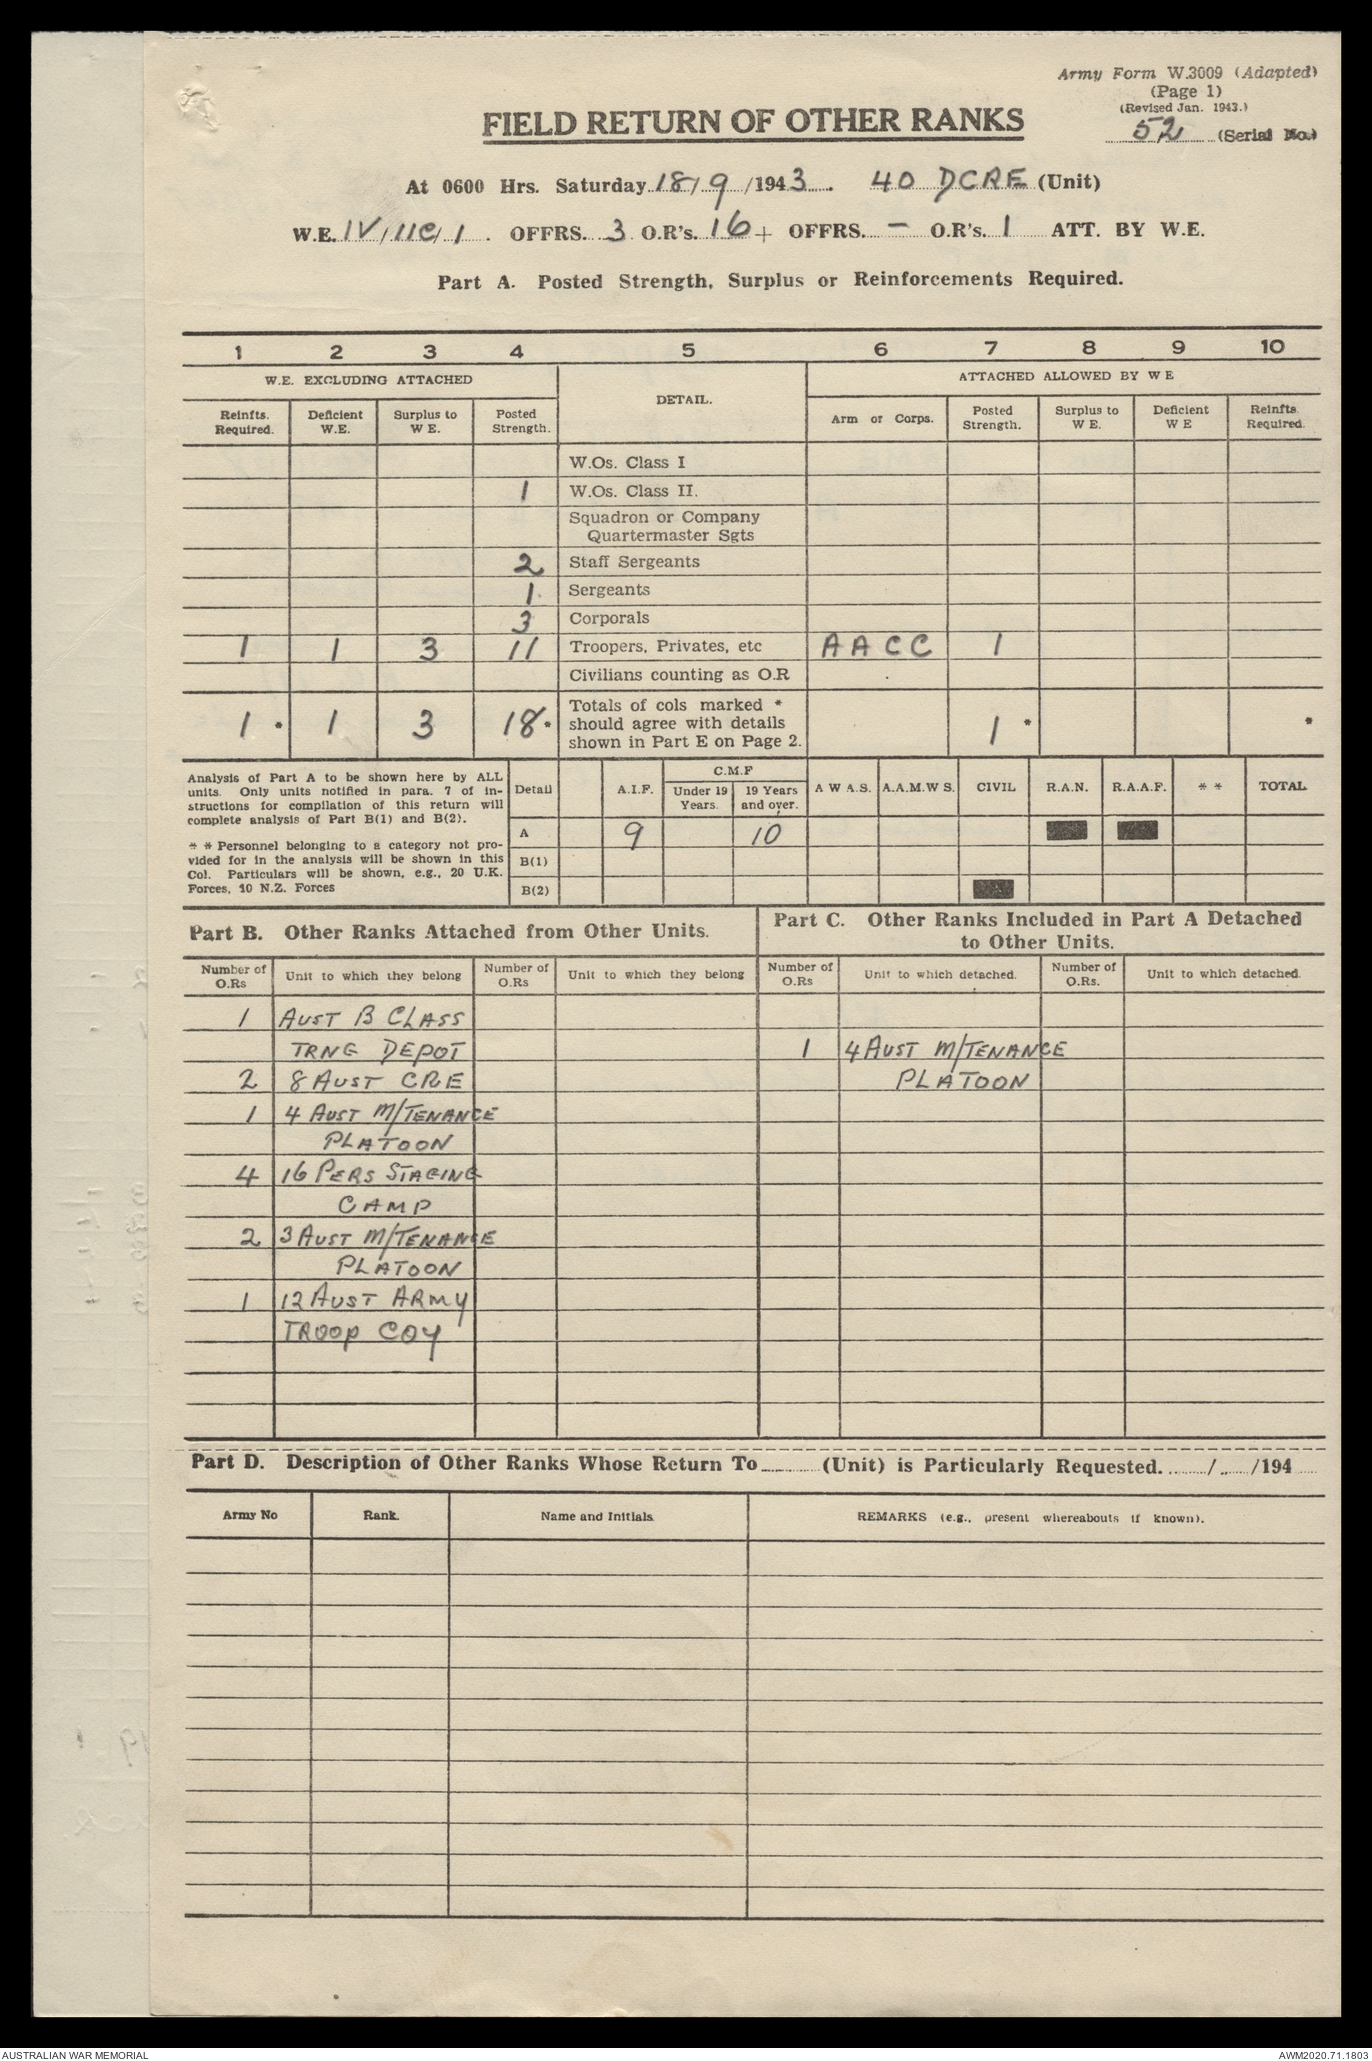 Army Form W.3009 (Adapted)
(Page 1)
(Revised Jan. 1943.)
52 (Serial No.)
FIELD RETURN OF OTHER RANKS
At 0600 Hrs. Saturday 18/9/1943. 40 DCRE (Unit)
W.E. IV/11C/1. OFFRS. 3 O.R's. 16 + OFFRS. – O.R's. 1 ATT. BY W.E.
Part A. Posted Strength, Surplus or Reinforcements Required.
1 2 3 4 5 6 7 8 9 10
W.E. EXCLUDING ATTACHED DETAIL. ATTACHED ALLOWED BY W E
Reinfts. Required. Deficient W.E. Surplus to W E. Posted Strength. Arm or Corps. Posted Strength. Surplus to W E. Deficient W E Reinfts. Required.
W.Os. Class I
1 W.Os. Class II.
Squadron or Company
Quartermaster Sgts
2 Staff Sergeants
1 Sergeants
3 Corporals
1 1 3 11 Troopers, Privates, etc AACC 1
Civilians counting as O.R
1 * 1 3 18 * Totals of cols marked * should agree with details shown in Part E on Page 2. 1 * *
Analysis of Part A to be shown here by ALL
units. Only units notified in para. 7 of in-
structions for compilation of this return will
complete analysis of Part B(1) and B(2).
* * Personnel belonging to a category not pro-
vided for in the analysis will be shown in this
Col. Particulars will be shown, e.g., 20 U.K.
Forces, 10 N.Z. Forces
Detail A.I.F. C.M.F Under 19 Years. 19 Years and over. A W A.S. A.A.M.W S. CIVIL R.A.N. R.A.A.F. * * TOTAL
A 9 10
B(1)
B(2)
Part B. Other Ranks Attached from Other Units.
Number of O.Rs Unit to which they belong Number of O.Rs Unit to which they belong
1 AUST B CLASS
TRNG DEPOT
2 8 AUST CRE
1 4 AUST M/TENANCE
PLATOON
4 16 PERS STAGING
CAMP
2 3 AUST M/TENANCE
PLATOON
1 12 AUST ARMY
TROOP COY
Part C. Other Ranks Included in Part A Detached
to Other Units.
Number of O.Rs Unit to which detached. Number of O.Rs. Unit to which detached.
1 4 AUST M/TENANCE
PLATOON
Part D. Description of Other Ranks Whose Return To (Unit) is Particularly Requested. / /194
Army No Rank. Name and Initials. REMARKS (e.g., present whereabouts if known).
AUSTRALIAN WAR MEMORIAL
AWM2020.71.1803